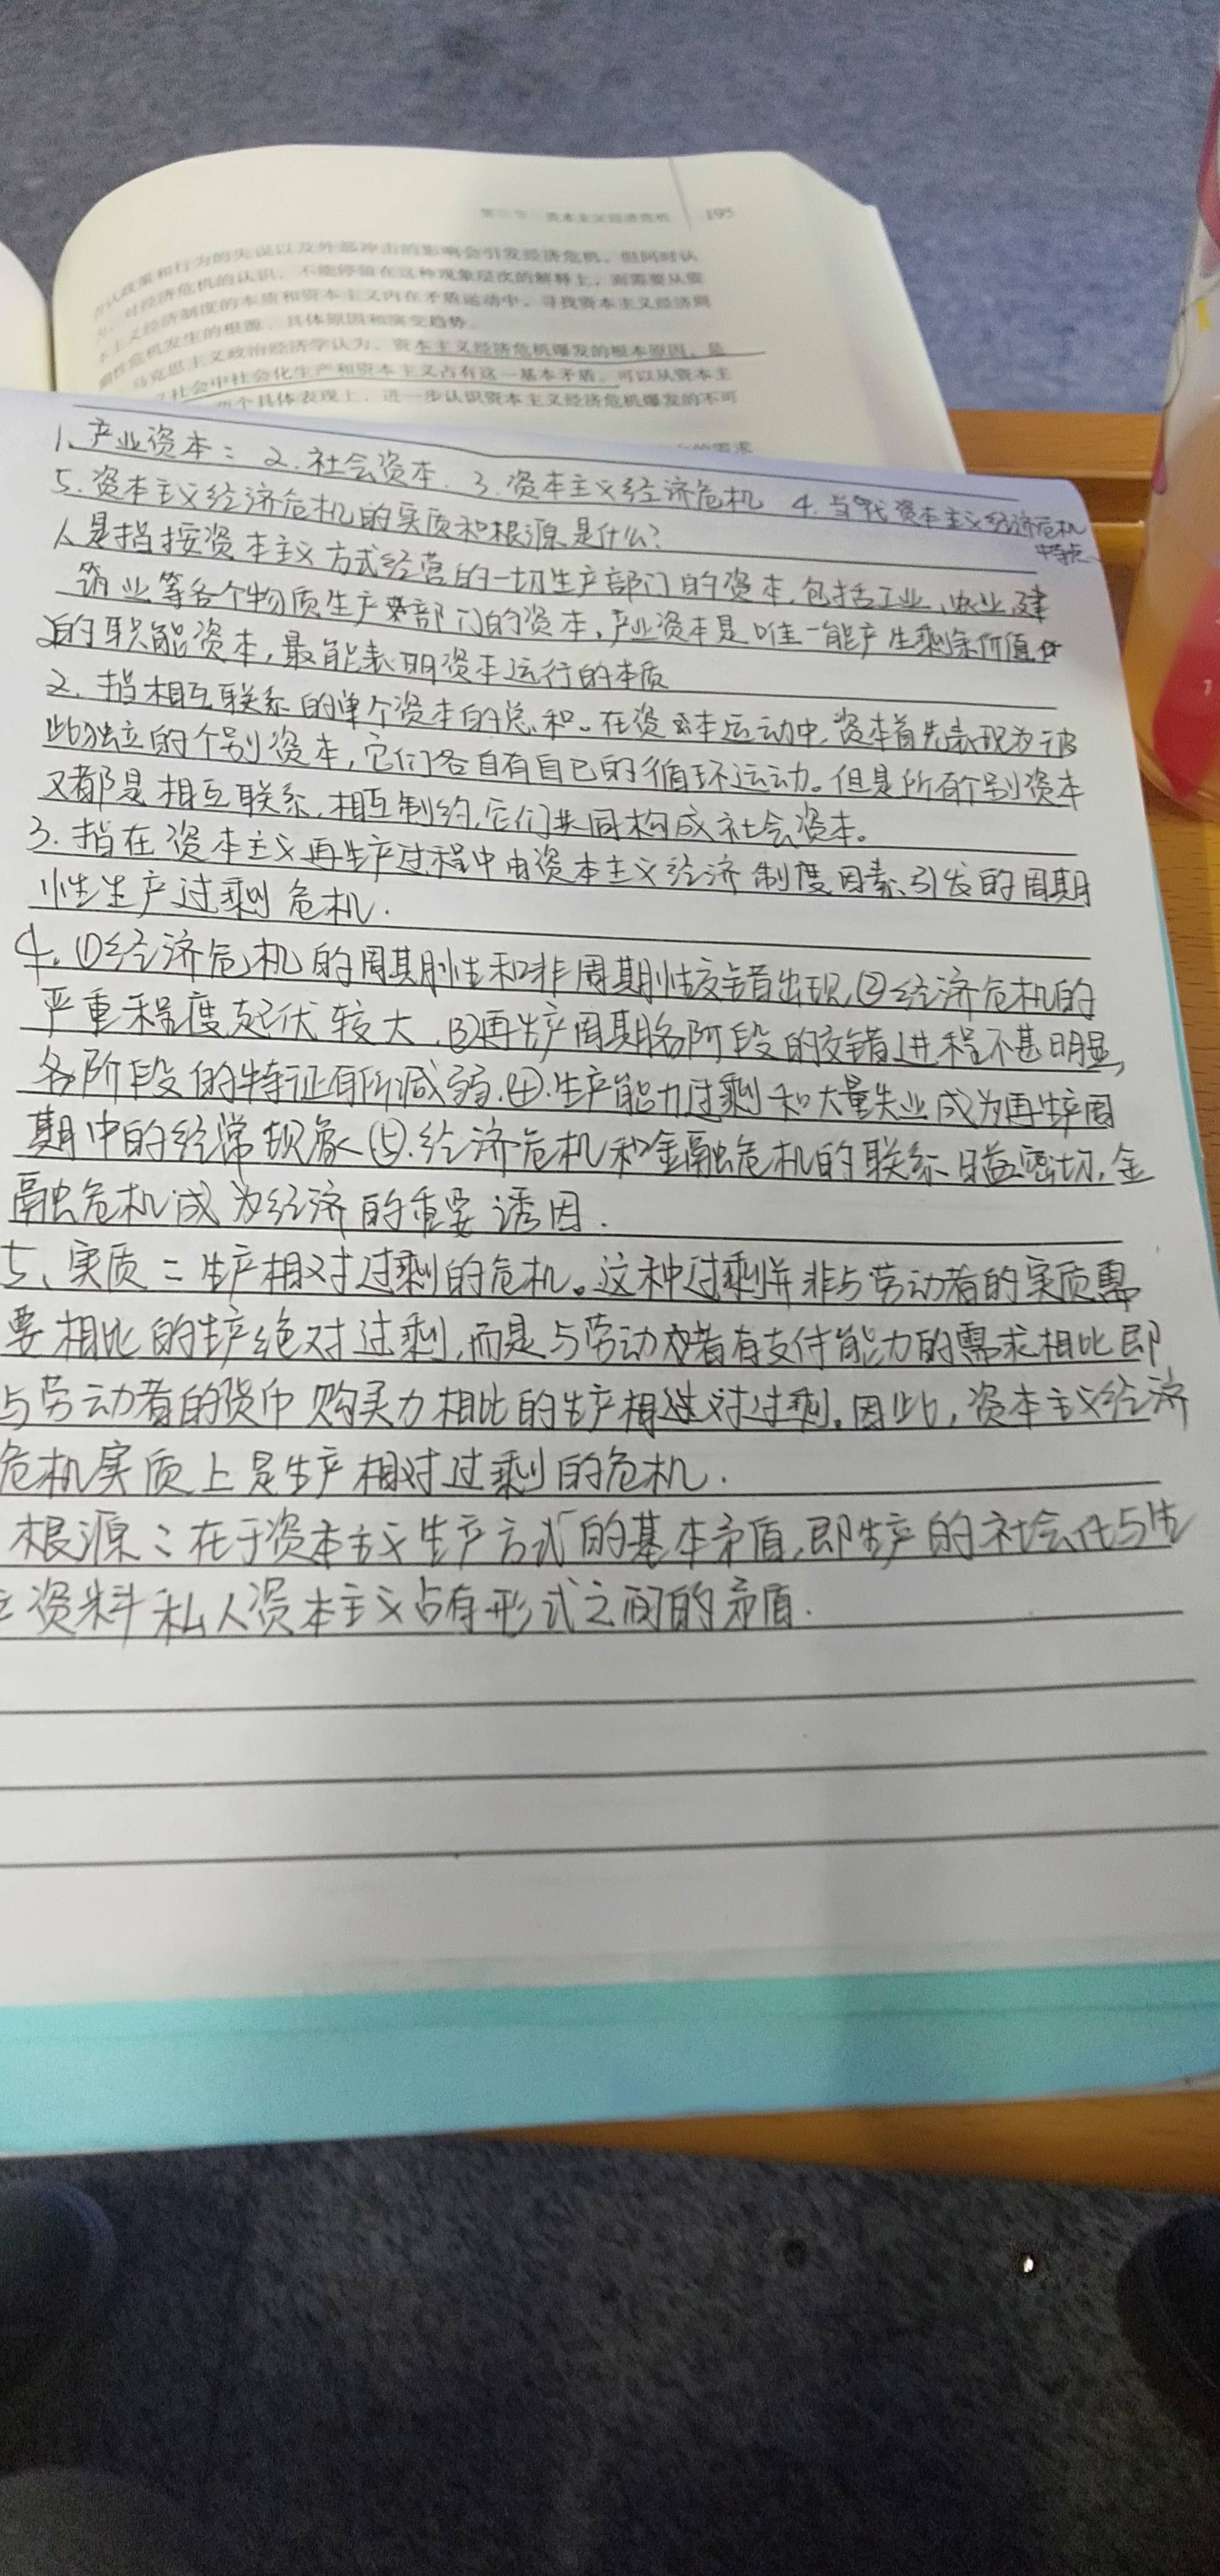 第三节 资本主义经济危机 195
否认政策和行为的失误以及外部冲击的影响会引发经济危机，但同时认
对经济危机的认识，不能停留在这种现象层次的解释上，而需要从资
本主义经济制度的本质和资本主义内在矛盾运动中，寻找资本主义经济周
期性危机发生的根源、具体原因和演变趋势。
马克思主义政治经济学认为，资本主义经济危机爆发的根本原因，是
社会中社会化生产和资本主义占有这一基本矛盾。可以从资本主
两个具体表现上，进一步认识资本主义经济危机爆发的不可
的需求
1、产业资本： 2.社会资本. 3.资本主义经济危机 4.当代资本主义经济危机
特点
5.资本主义经济危机的实质和根源是什么？
1.是指按资本主义方式经营的一切生产部门的资本,包括工业、农业、建
筑业等各个物质生产部门的资本,产业资本是唯一能产生剩余价值
的职能资本,最能表明资本运行的本质
2、指相互联系的单个资本的总和。在资本运动中,资本首先表现为彼
此独立的个别资本,它们各自有自己的循环运动。但是所有个别资本
又都是相互联系,相互制约,它们共同构成社会资本。
3.指在资本主义再生产过程中由资本主义经济制度因素引发的周期
性生产过剩危机.
4.①经济危机的周期性和非周期性交错出现.②经济危机的
严重程度起伏较大.③再生产周期各阶段的交错进程不甚明显,
各阶段的特征有所减弱.④.生产能力过剩和大量失业成为再生产周
期中的经常现象⑤.经济危机和金融危机的联系日益密切,金
融危机成为经济的重要诱因.
5、实质：生产相对过剩的危机。这种过剩并非与劳动者的实质需
要相比的生产绝对过剩,而是与劳动者有支付能力的需求相比即
与劳动者的货币购买力相比的生产相对过剩。因此,资本主义经济
危机实质上是生产相对过剩的危机.
根源：在于资本主义生产方式的基本矛盾,即生产的社会化与生
产资料私人资本主义占有形式之间的矛盾.